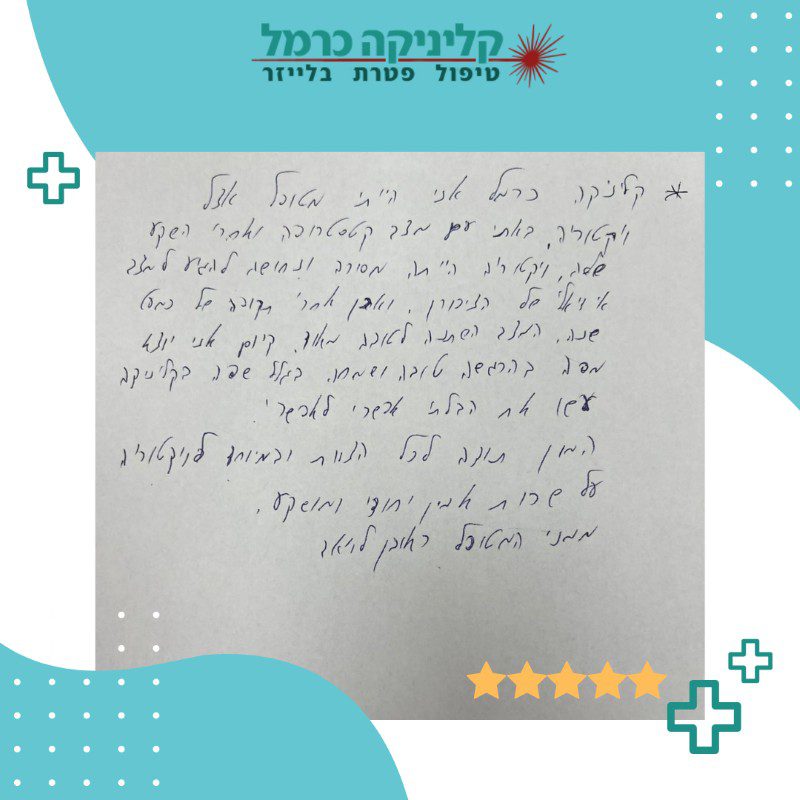 קליניקה כרמל
טיפול פטרת בלייזר
* קליניקה כרמל אני הייתי מטופל אצל
ויקטוריה, באתי עם מצב קטסטרופה ואחרי השקע
שלה, ויקטוריה הייתה מסורה ונחושה להגיע למצב
אידיאלי של הציפורן. ואכן אחרי תקופה של כמעט
שנה, המצב השתנה לטובה מאוד. קיום אני יוצא
מפה בהרגשה טובה ושמחה. בגלל שפה בקליניקה
עשו את הבלתי אפשרי לאפשרי!
המון תודה לכל הצוות ובמיוחד לויקטוריה
על שרות אמין יחודי ומושקע.
ממני המטופל ראובן